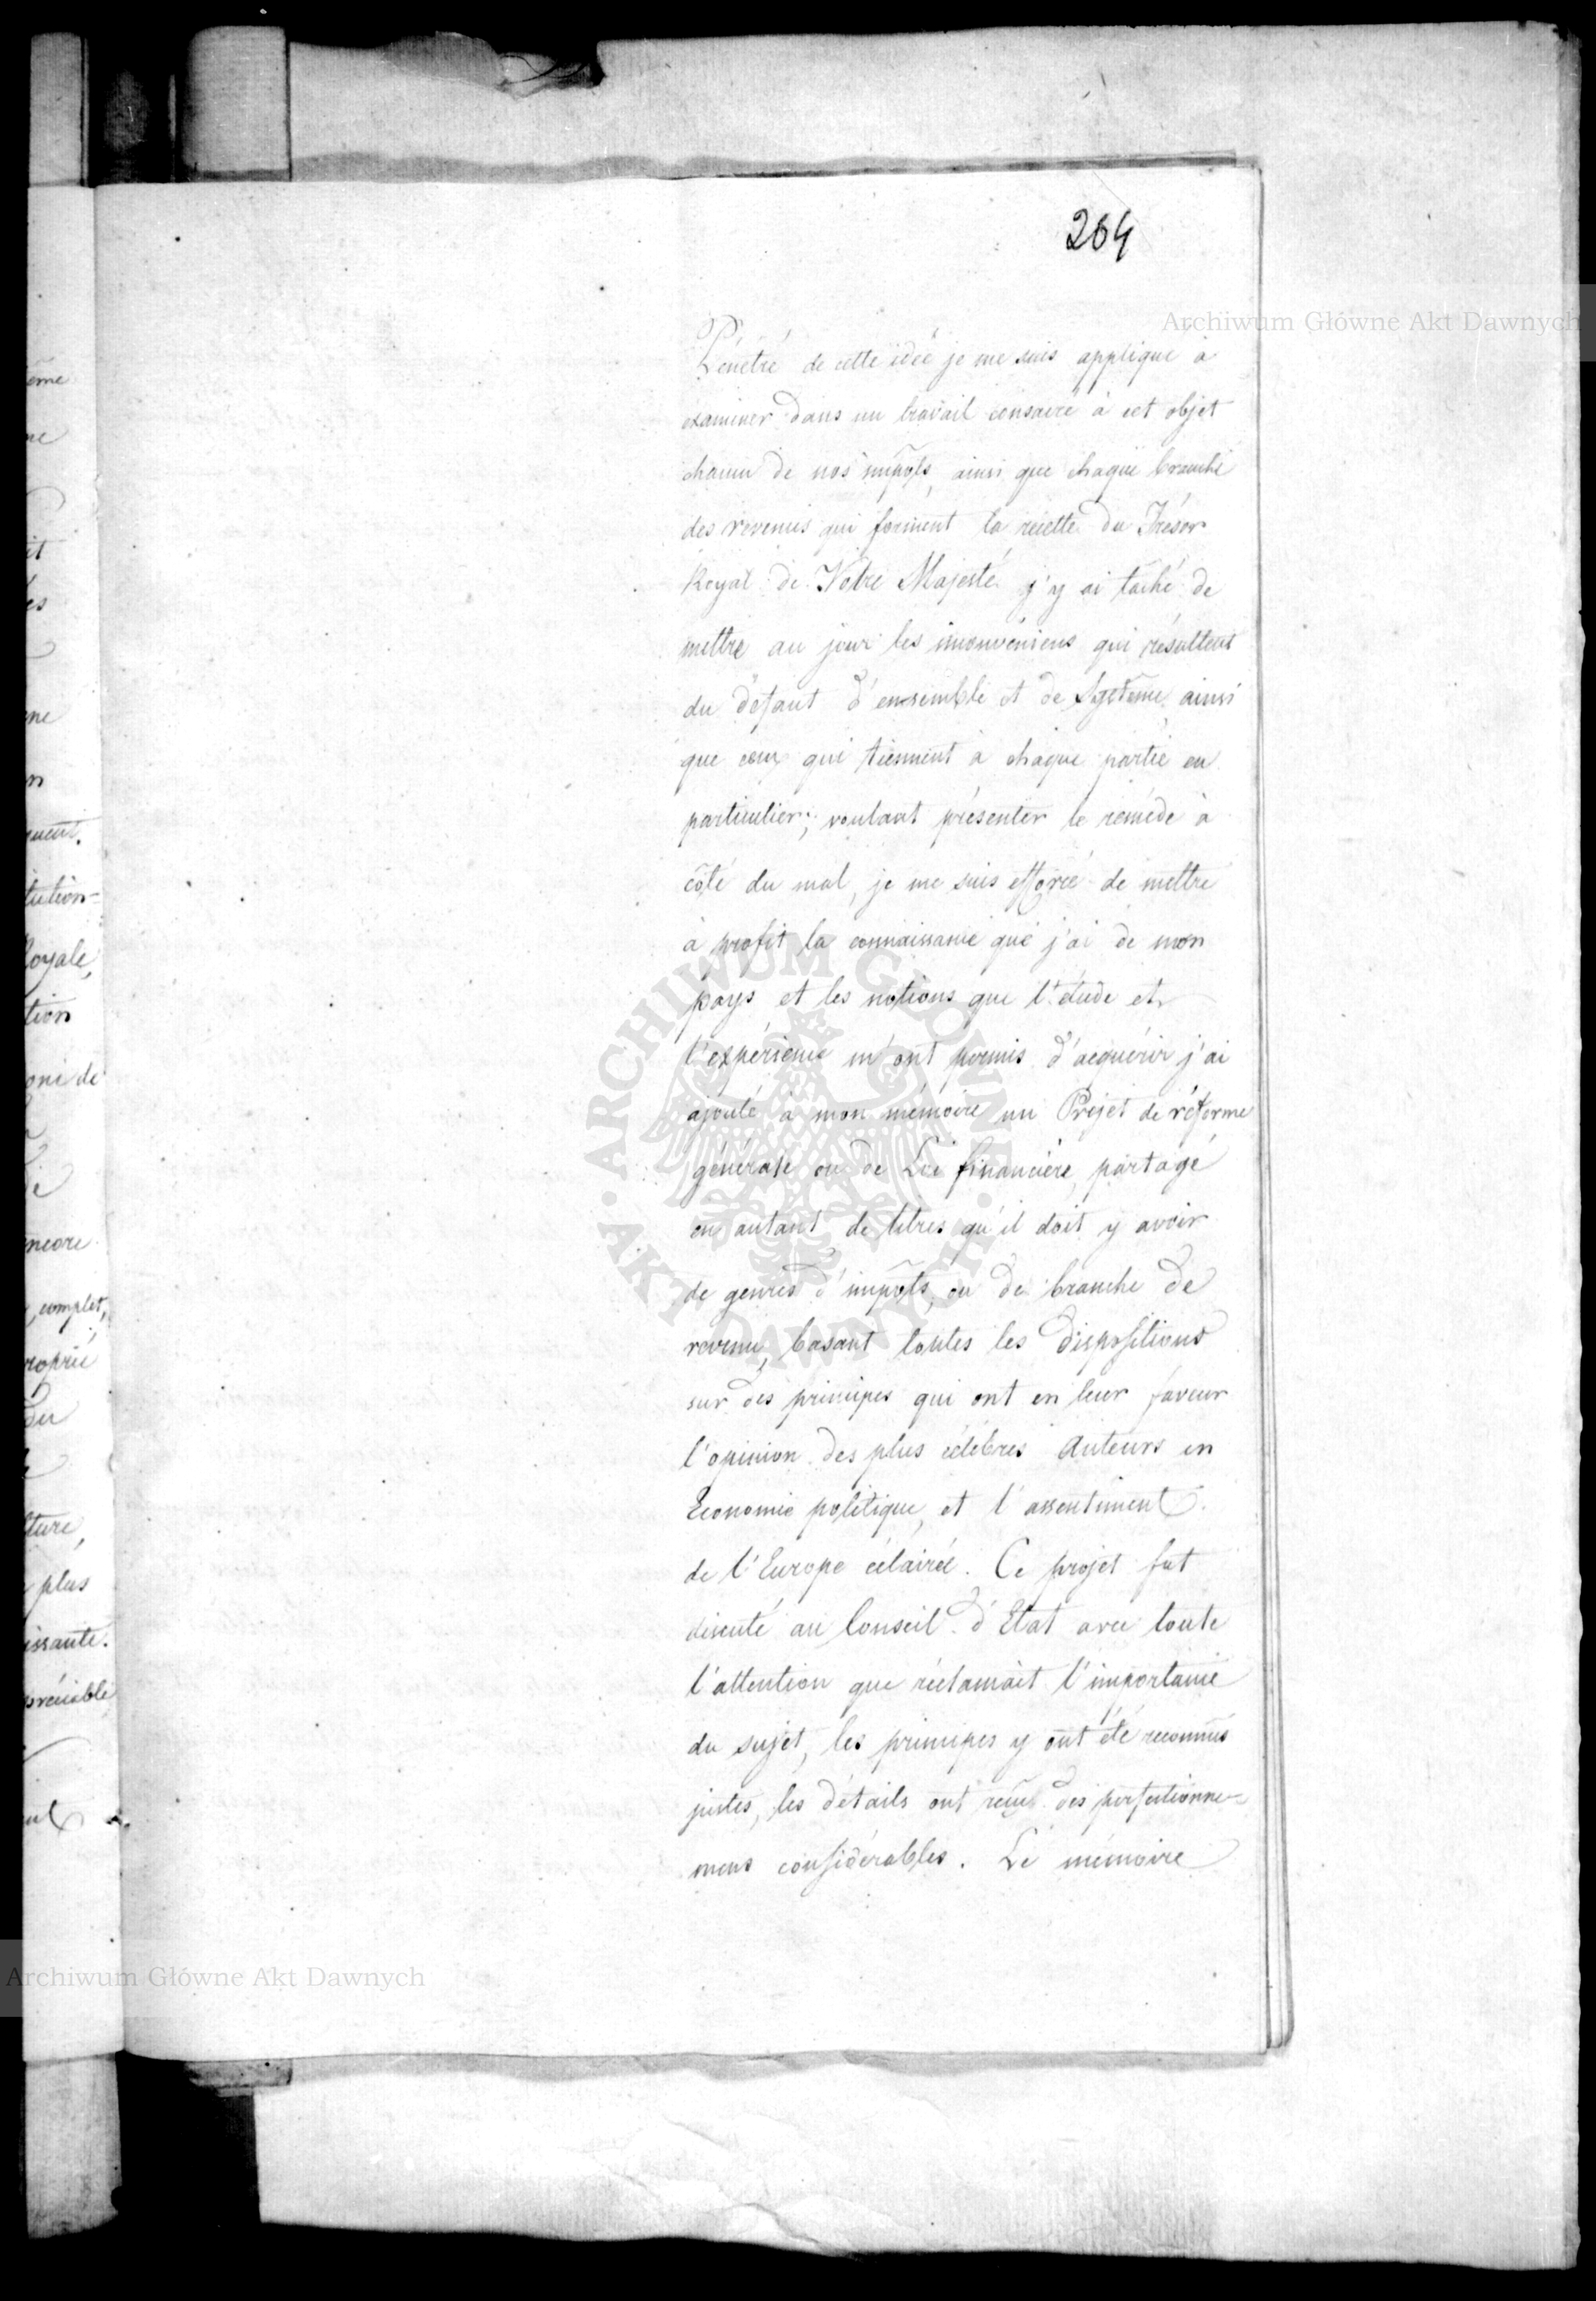 264
Pénétré de cette idée je me suis appliqué à
examiner dans un travail consacré à cet objet
chacun de nos impôts, ainsi que chaque branche
des revenus qui forment la recette du Trésor
Royal de Votre Majesté j'y ai taché de
mettre au jour les inconvéniens qui résultent
du défaut d'ensemble et de Système, ainsi
que ceux qui tiennent à chaque partie en
particulier; voulant présenter le remède à
côté du mal, je me suis efforcé de mettre
à profit la connaissance que j'ai de mon
pays et les notions que l'étude et
l'expérience m'ont permis d'acquérir j'ai
ajouté à mon mémoire un Projet de réforme
générale ou de Loi financière, partagé
en autant de titres qu'il doit y avoir
de genres d'impôts, ou de branche de
revenu, basant toutes les dispositions
sur des principes qui ont en leur faveur
l'opinion des plus célèbres Auteurs en
Economie politique, et l'assentiment
de l'Europe éclairée. Ce projet fut
discuté au Conseil d'Etat avec toute
l'attention que réclamait l'importance
du sujet, les principes y ont été reconnus
justes, les détails ont reçu des perfectionne-
mens considérables. Le mémoire
ême
ne
it
es
ne
n
quent.
tution-
Royale,
tion
oni de
encore
, complet,
roprié
du
ture,
plus
issante.
préciable
Archiwum Główne Akt Dawnych
Archiwum Główne Akt Dawnych
ARCHIWUM GŁÓWNE AKT DAWNYCH